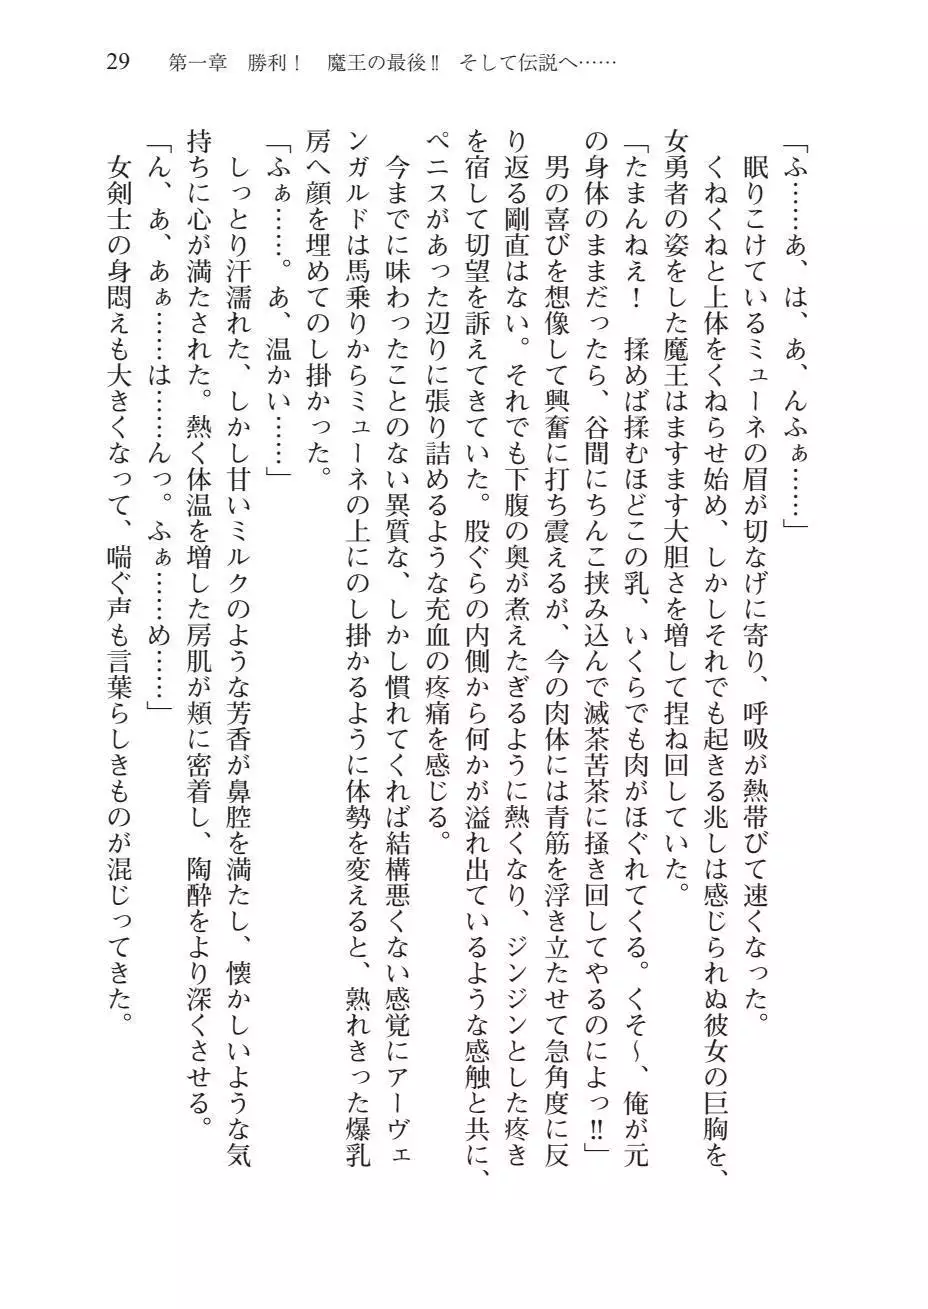 29　第一章　勝利！　魔王の最後!!　そして伝説へ……
「ふ……あ、は、あ、んふぁ……」
　眠りこけているミューネの眉が切なげに寄り、呼吸が熱帯びて速くなった。
　くねくねと上体をくねらせ始め、しかしそれでも起きる兆しは感じられぬ彼女の巨胸を、
女勇者の姿をした魔王はますます大胆さを増して捏ね回していた。
「たまんねえ！　揉めば揉むほどこの乳、いくらでも肉がほぐれてくる。くそ～、俺が元
の身体のままだったら、谷間にちんこ挟み込んで滅茶苦茶に掻き回してやるのによっ!!」
　男の喜びを想像して興奮に打ち震えるが、今の肉体には青筋を浮き立たせて急角度に反
り返る剛直はない。それでも下腹の奥が煮えたぎるように熱くなり、ジンジンとした疼き
を宿して切望を訴えてきていた。股ぐらの内側から何かが溢れ出ているような感触と共に、
ペニスがあった辺りに張り詰めるような充血の疼痛を感じる。
　今までに味わったことのない異質な、しかし慣れてくれば結構悪くない感覚にアーヴェ
ンガルドは馬乗りからミューネの上にのし掛かるように体勢を変えると、熟れきった爆乳
房へ顔を埋めてのし掛かった。
「ふぁ……。あ、温かい……」
　しっとり汗濡れた、しかし甘いミルクのような芳香が鼻腔を満たし、懐かしいような気
持ちに心が満たされた。熱く体温を増した房肌が頬に密着し、陶酔をより深くさせる。
「ん、あ、あぁ……は……んっ。ふぁ……め……」
　女剣士の身悶えも大きくなって、喘ぐ声も言葉らしきものが混じってきた。